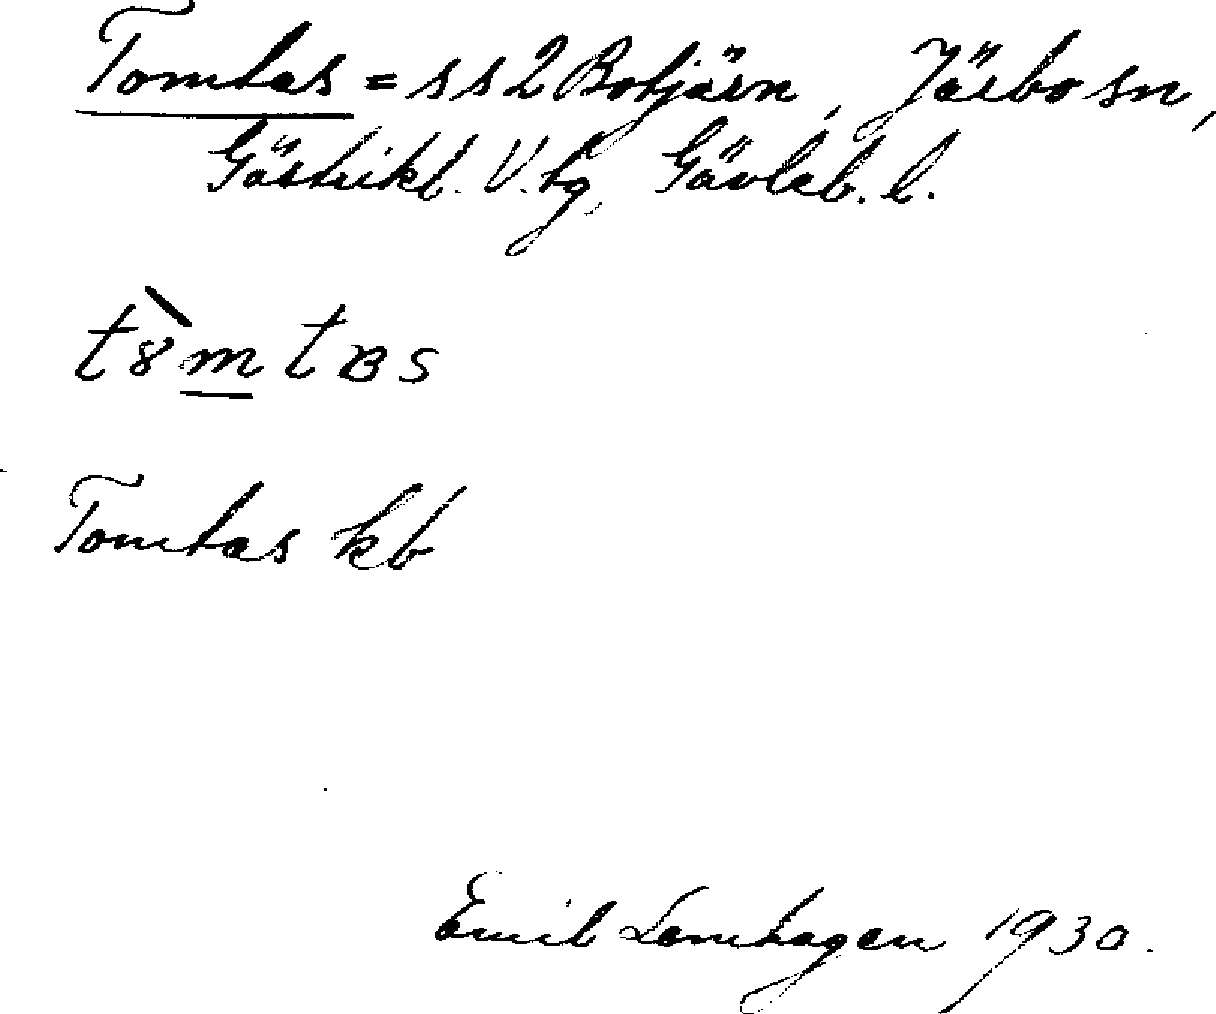 Tomtas = s s 2 Botjärn, Järbo sn,
Gästrikl. V. tg, Gävleb. l.
t8̀m̲tʙs
Tomtas kb
Emil Lamhagen 1930.